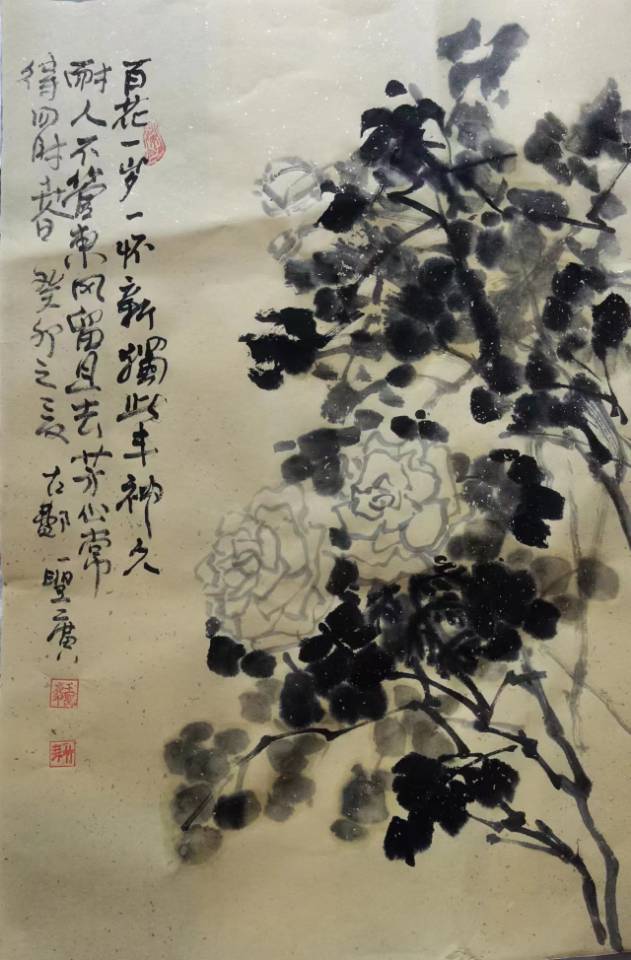 百花一岁一怀新獨此丰神久
耐人不管東风留且去芳心常
得四时春 癸卯之夏 古